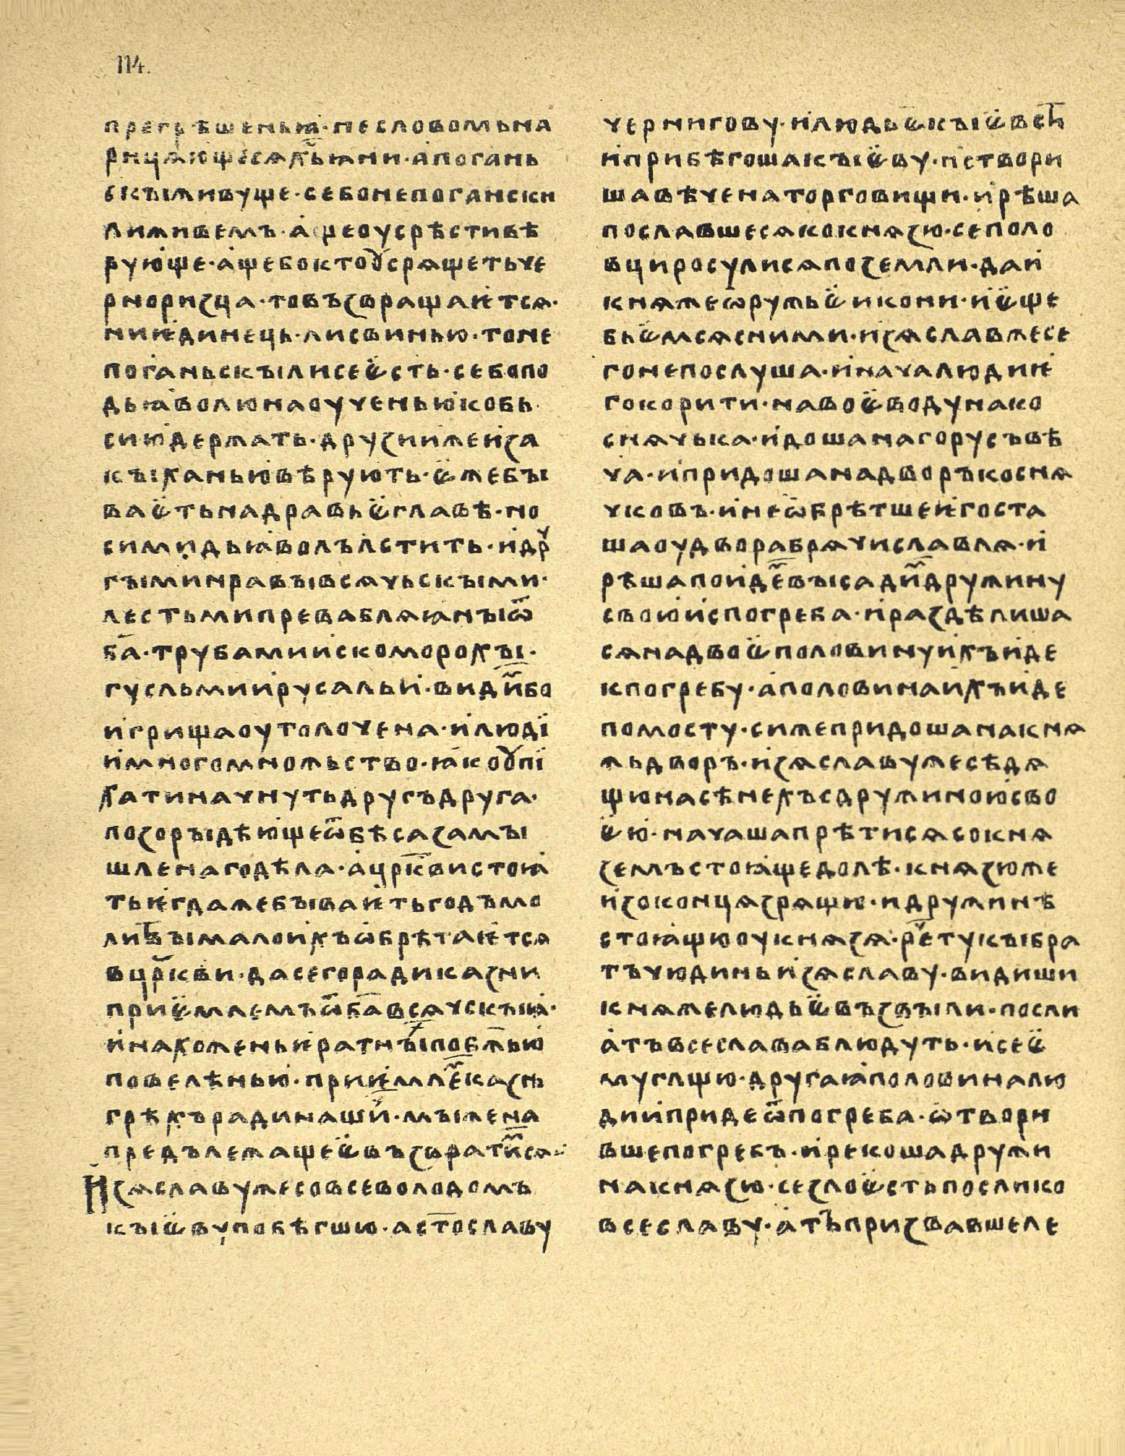 114.
прегрѣшеньꙗ · не словомъ на
рицающесѧ хрьꙗни · а погань
скъı живуще · се бо не поганскы
ли живемъ · аще оусрѣсти вѣ
рующе · аще бо кто оусрѧщеть че
рноризца · то възвращаѥтсѧ ·
ни ѥдинець · ли свинью · то не
поганьскъı ли се єсть · се бо по
дьꙗволю наоученью кобь
сию держать · друзии же и за
къıханью вѣрують · єже бъı
ваєть на здравьє главѣ · но
симь дьꙗволъ лстить · и дрꙋ
гъıми нравъı всѧчьскъıми ·
лестьми превабляꙗ нъı ѿ
ба҃ · трубами и скоморохъı ·
гусльми и русальи · види҃ бо
игрища оутолочена · и людї
и много множьство · ꙗко оупї
хати начнуть другъ друга ·
позоръı дѣюще ѿ бѣса замъı
шленаго дѣла · а црк҃ви стоꙗ
ть ѥгда же бъıваѥть годъ мо
литвъı мало ихъ ѡбрѣтаѥтсѧ
в цр҃кви · да сего ради казни
приємлемъ ѿ ба҃ всѧчскъıꙗ ·
и нахоженьѥ ратнъı по бж҃ью
повелѣнью · приѥмле҃ казнь
грѣхъ ради наши҃ · мъı же на
предълежащеє възврати҃сѧ ·:·
Изѧславу же со всеволодомъ
къıєву побѣгшю · а ст҃ославу
чернигову · и людьє къıєвстии
и прибѣгоша къıєву · и створи
ша вѣче на торговищи · и рѣша
пославшесѧ ко кнѧзю · се поло
вци росулисѧ по земли · даи
кнѧже ѡружьє и кони · и єще
бьємсѧ с ними · изѧслав же се
го не послуша · и нача людиѥ
говорити · на воєводу на ко
снѧчька · идоша на гору съ вѣ
ча · и придоша на дворъ коснѧ
чковъ · и не ѡбрѣтше ѥго ста
ша оу двора брѧчиславлѧ · и
рѣша поиде҃въı сади҃ дружину
свою ис погреба · и раздѣлиша
сѧ надвоє половину ихъ иде
к погребу · а половина ихъ иде
по мосту · си же придоша на кнѧ
жь дворъ · изѧславу же сѣдѧ
щю на сѣнехъ с дружиною сво
єю · начаша прѣтисѧ со кнѧ
земъ стоꙗще долѣ · кнѧзю же
изоконцѧ зрѧщю · и дружинѣ
стоꙗщю оу кнѧзѧ · рече тукъı бра
тъ чюдинь изѧславу · видиши
кнѧже людьє възвъıли · посли
атъ всеслава блюдуть · и се є
му глщю · другаꙗ половина лю
дии приде ѿ погреба · ѿтвори
вше погребъ · и рекоша дружи
на кнѧзю · се зло єсть посли ко
всеславу · атъ призвавше ле